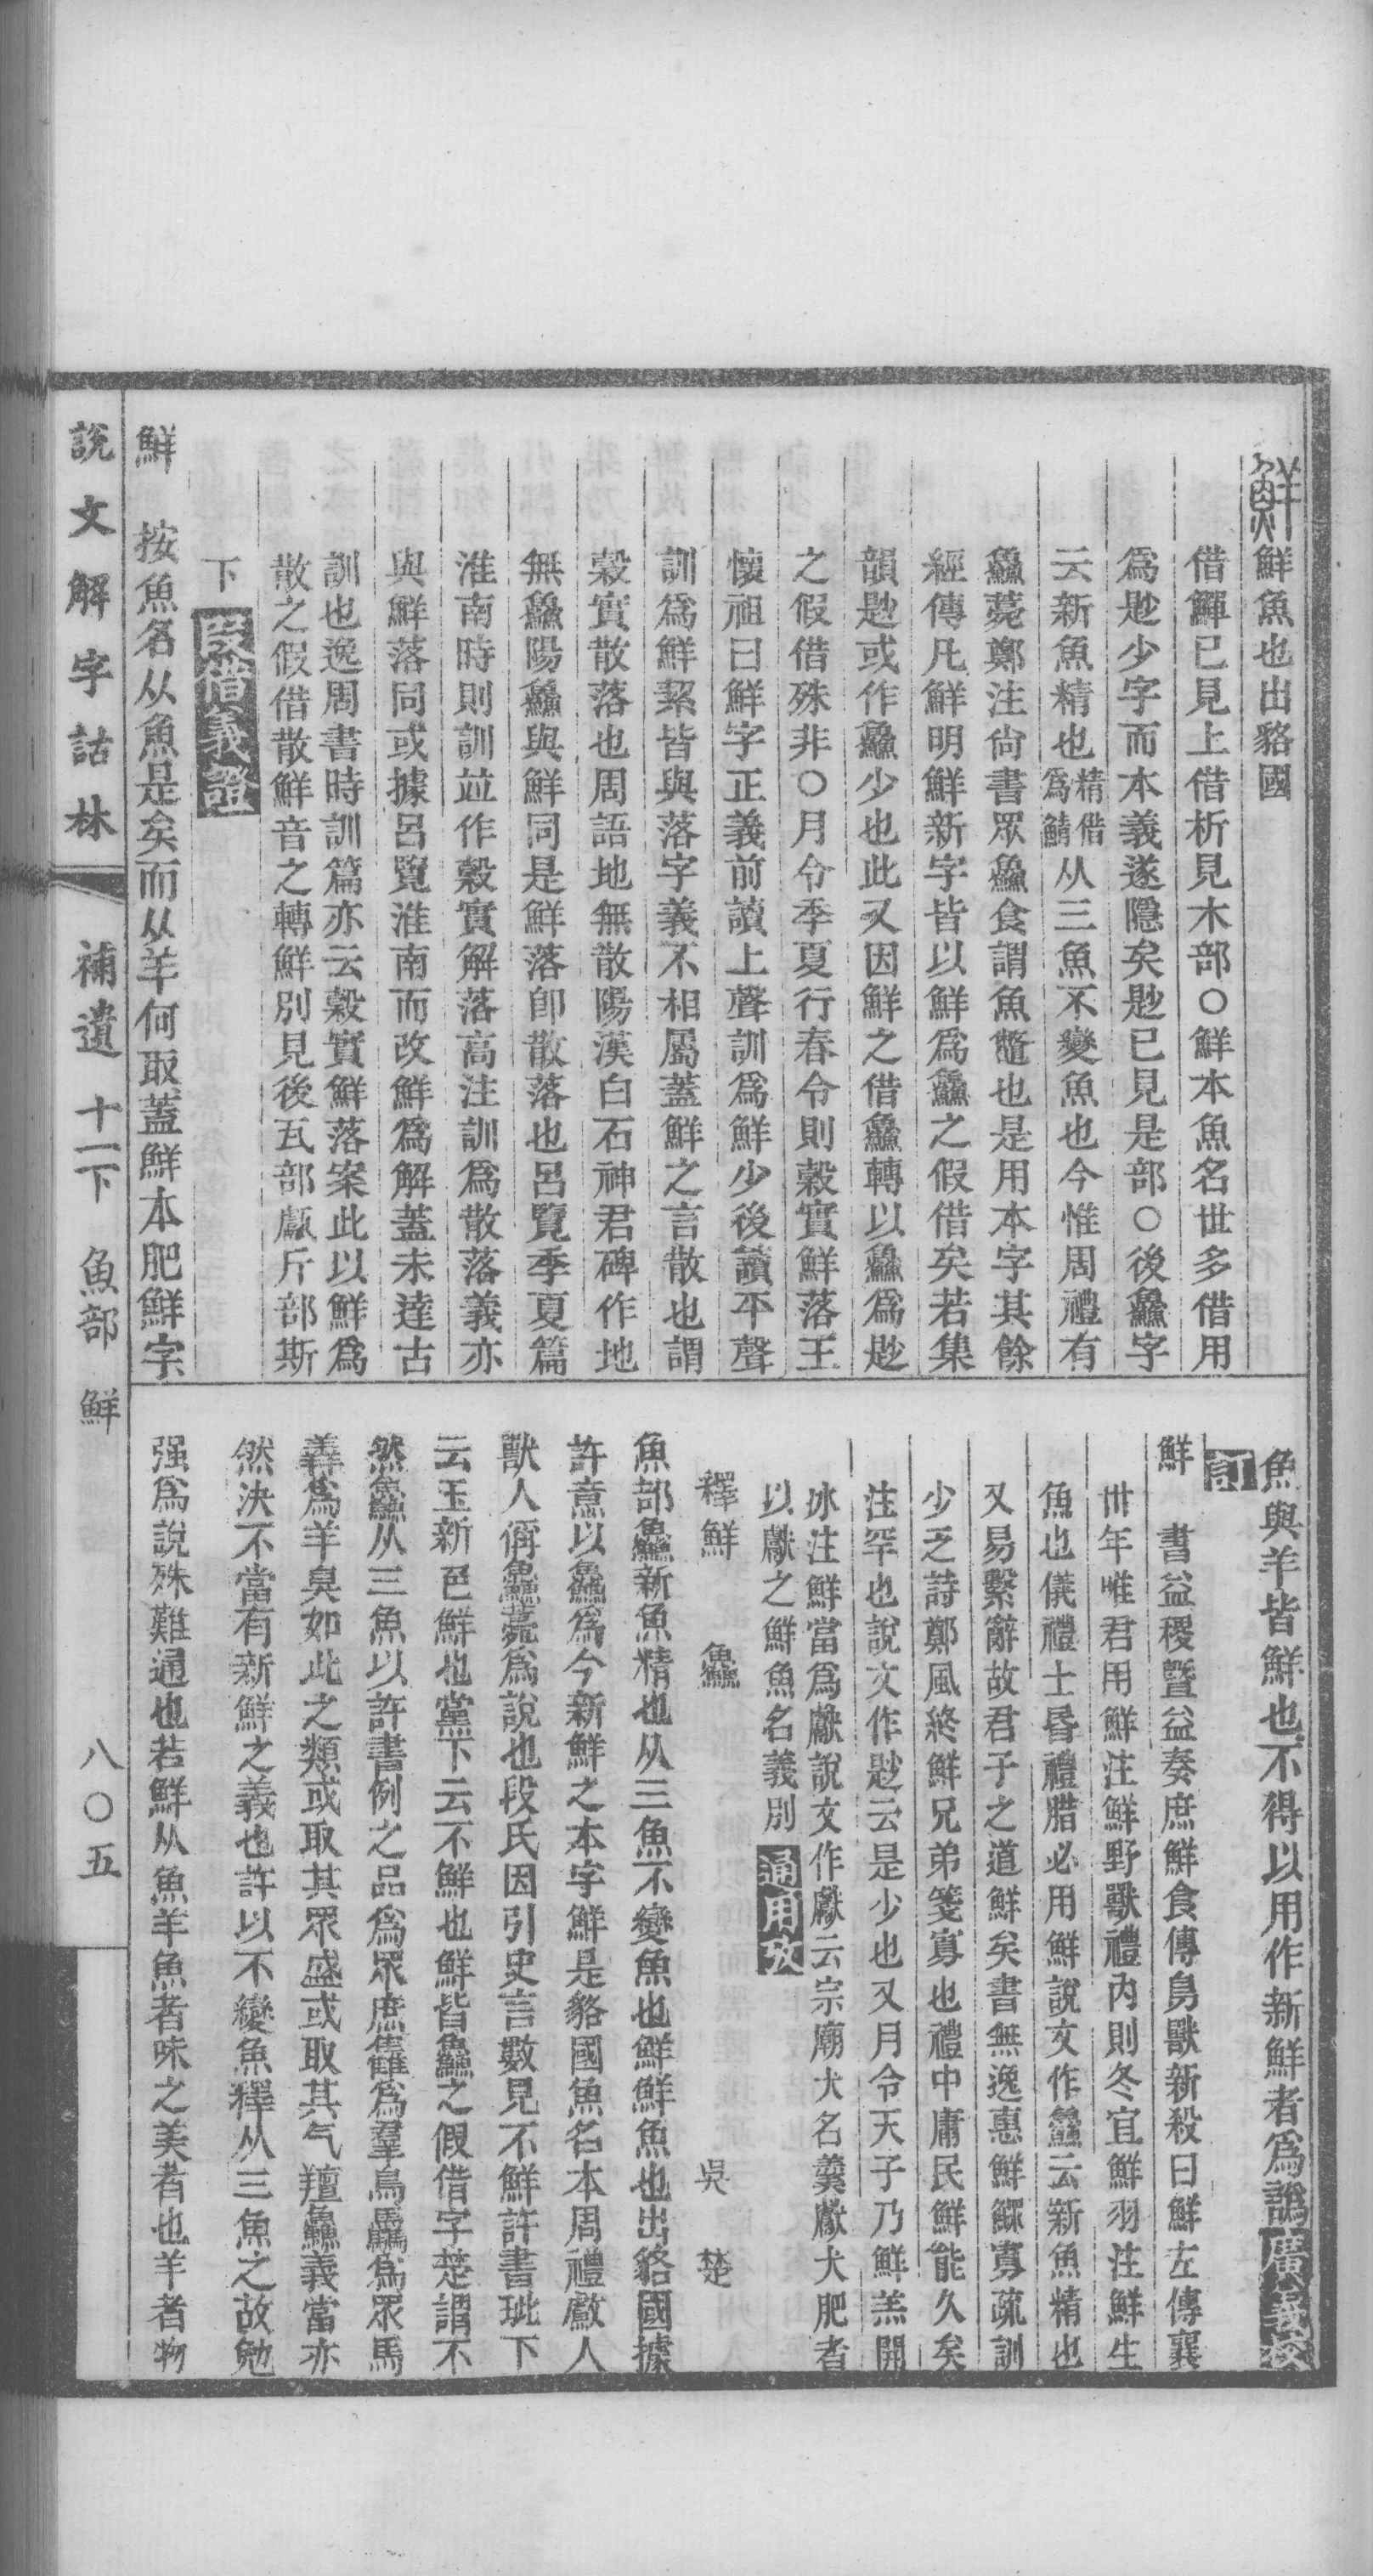 鮮鮮魚也出貉國
借鱓已見上借析見木部○鮮本魚名世多借用
爲尟少字而本義遂隱矣尟已見是部○後鱻字
云新魚精也精借爲鯖从三魚不變魚也今惟周禮有
鱻薧鄭注尙書眾鱻食謂魚鼈也是用本字其餘
經傳凡鮮明鮮新字皆以鮮爲鱻之假借矣若集
韻尟或作鱻少也此又因鮮之借鱻轉以鱻爲尟
之假借殊非○月令季夏行春令則穀實鮮落王
懷祖曰鮮字正義前讀上聲訓爲鮮少後讀平聲
訓爲鮮絜皆與落字義不相屬蓋鮮之言散也謂
穀實散落也周語地無散陽漢白石神君碑作地
無鱻陽鱻與鮮同是鮮落卽散落也呂覽季夏篇
淮南時則訓竝作穀實解落高注訓爲散落義亦
與鮮落同或據呂覽淮南而改鮮爲解蓋未達古
訓也逸周書時訓篇亦云穀實鮮落案此以鮮爲
散之假借散鮮音之轉鮮別見後瓦部甗斤部斯
下叚借義證
鮮　按魚名从魚是矣而从羊何取蓋鮮本肥鮮字
魚與羊皆鮮也不得以用作新鮮者爲譌廣義校
訂
鮮　書益稷曁益奏庶鮮食傳鳥獸新殺曰鮮左傳襄
卅年唯君用鮮注鮮野獸禮內則冬宜鮮羽注鮮生
魚也儀禮士昏禮腊必用鮮說文作鱻云新魚精也
又易繫辭故君子之道鮮矣書無逸惠鮮鰥寡疏訓
少乏詩鄭風終鮮兄弟箋寡也禮中庸民鮮能久矣
注罕也說文作尟云是少也又月令天子乃鮮羔開
冰注鮮當爲獻說文作獻云宗廟犬名羹獻犬肥者
以獻之鮮魚名義別通用攷
釋鮮　鱻　吳楚
魚部鱻新魚精也从三魚不變魚也鮮鮮魚也出貉國據
許意以鱻爲今新鮮之本字鮮是貉國魚名本周禮䱷人
獸人偁鱻薧爲說也段氏因引史言數見不鮮許書玼下
云玉新色鮮也黨下云不鮮也鮮皆鱻之假借字楚謂不
然鱻从三魚以許書例之品爲眾庶雥爲羣鳥驫爲眾馬
羴爲羊臭如此之類或取其眾盛或取其气羶鱻義當亦
然決不當有新鮮之義也許以不變魚釋从三魚之故勉
强爲說殊難通也若鮮从魚羊魚者味之美者也羊者物
說文解字詁林　補遺　十一下　魚部　鮮　八〇五